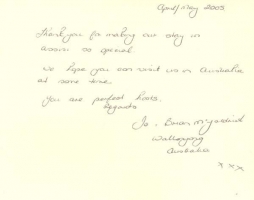 April/May 2005
Thank you for making our stay in
so special.
We hope you can visit us in Australia
at some time.
You are perfect hosts.
Regards
Jo & Brian
Wollongong
Australia
x x x